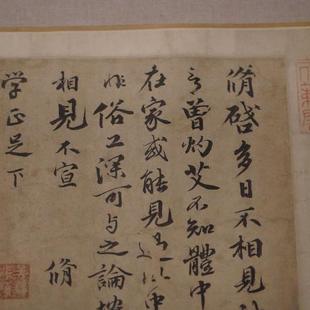 脩啓多日不相見
言曾灼艾不知體中
在家或能見過此中
非俗工深可与之論
相見不宣 脩
学正足下